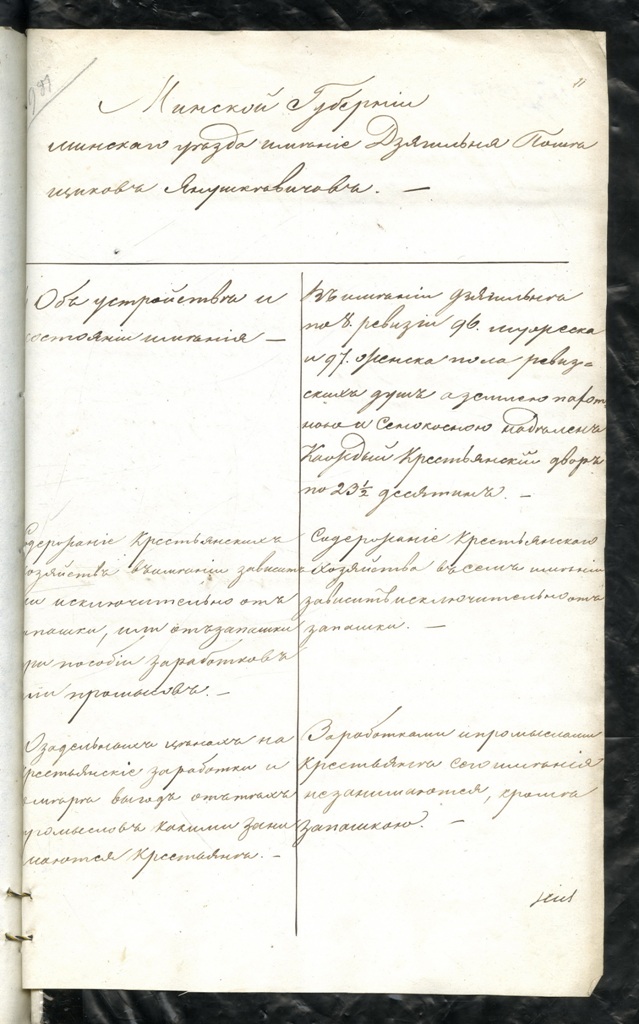 11
Минской Губерніи
минскаго уезда имѣніе Дзягильня Помѣ
щиковъ Янушкевичовъ. —
Объ устройствѣ и
состояніи имѣнія —
Въ имѣніи дзягильнѣ
по 8. ревизіи 96. мужеска
и 97. женска пола ревиз-
скихъ душъ а землею пахот
ною и сенокосною надѣленъ
Каждый Крестьянскій дворъ
по 23½ десятинъ. —
одержаніе Крестьянскихъ
хозяйствъ въ имѣніи зависитъ
ли исключительно отъ
пашки, или отъ запашки
при пособіи заработковъ
или промысловъ. —
Содержаніе Крестьянскаго
хозяйства въ семъ имѣніи
зависитъ исключительно отъ
запашки. —
О задельныхъ цѣнахъ на
крестьянскіе заработки и
о мѣрѣ выгодъ отъ тѣхъ
промысловъ какими зани
маются Крестьянѣ. —
Заработками и промыслами
Крестьянѣ сего имѣнія
незанимаются, кромѣ
запашкою. —